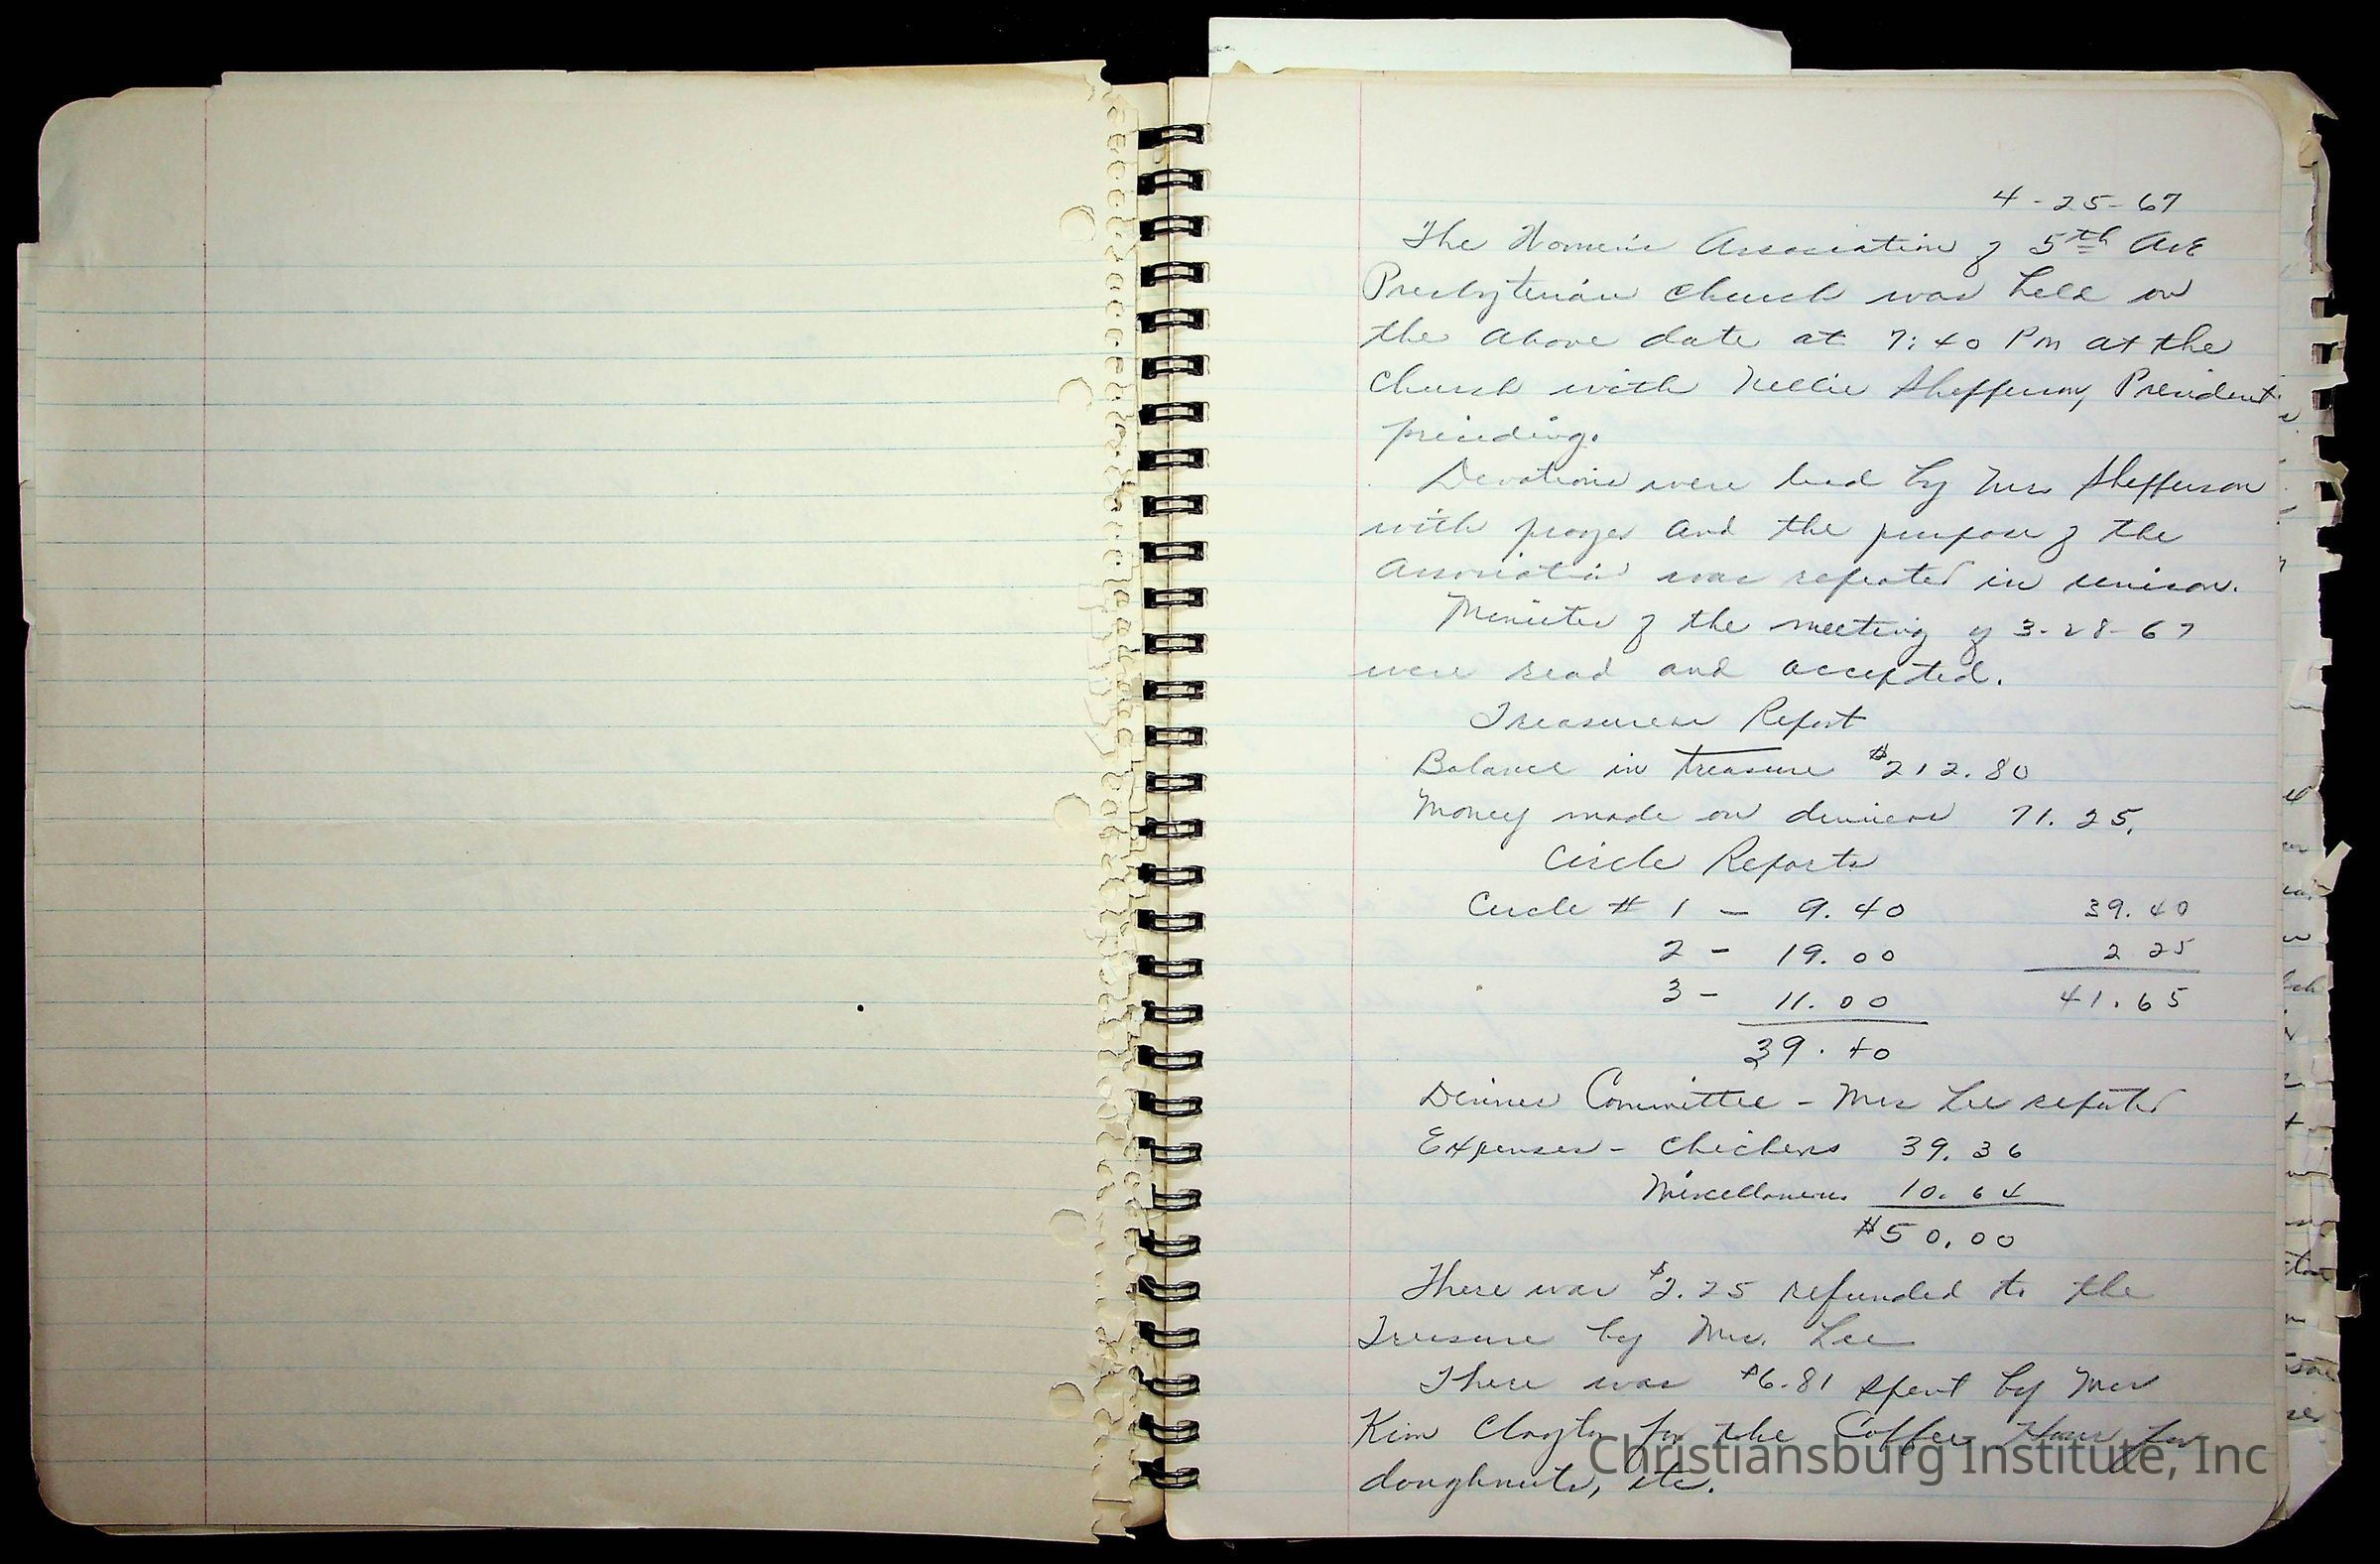 4-25-67
The Women's Association of 5th Ave
Presbyterian Church was held on
the above date at 7:40 Pm at the
Church with Nellie Shefferson, President
presiding.
Devotions were lead by Mrs Shefferson
with prayer and the purpose of the
Association was repeated in unison.
Minutes of the meeting of 3-28-67
were read and accepted.
Treasurers Report
Balance in treasure $212.80
Money made on dinners 71.25.
Circle Reports
Circle # 1 - 9.40 39.40
2 - 19.00 2 25
3 - 11.00 41.65
39.40
Dinner Committee - Mrs Lee reported
Expenses - Chickens 39.36
Miscellaneous 10.64
$50.00
There was $2.25 refunded to the
Treasure by Mrs. Lee
There was $6.81 spent by Mrs
Kim Clayton for the Coffee Hour for
doughnuts, etc.
Christiansburg Institute, Inc